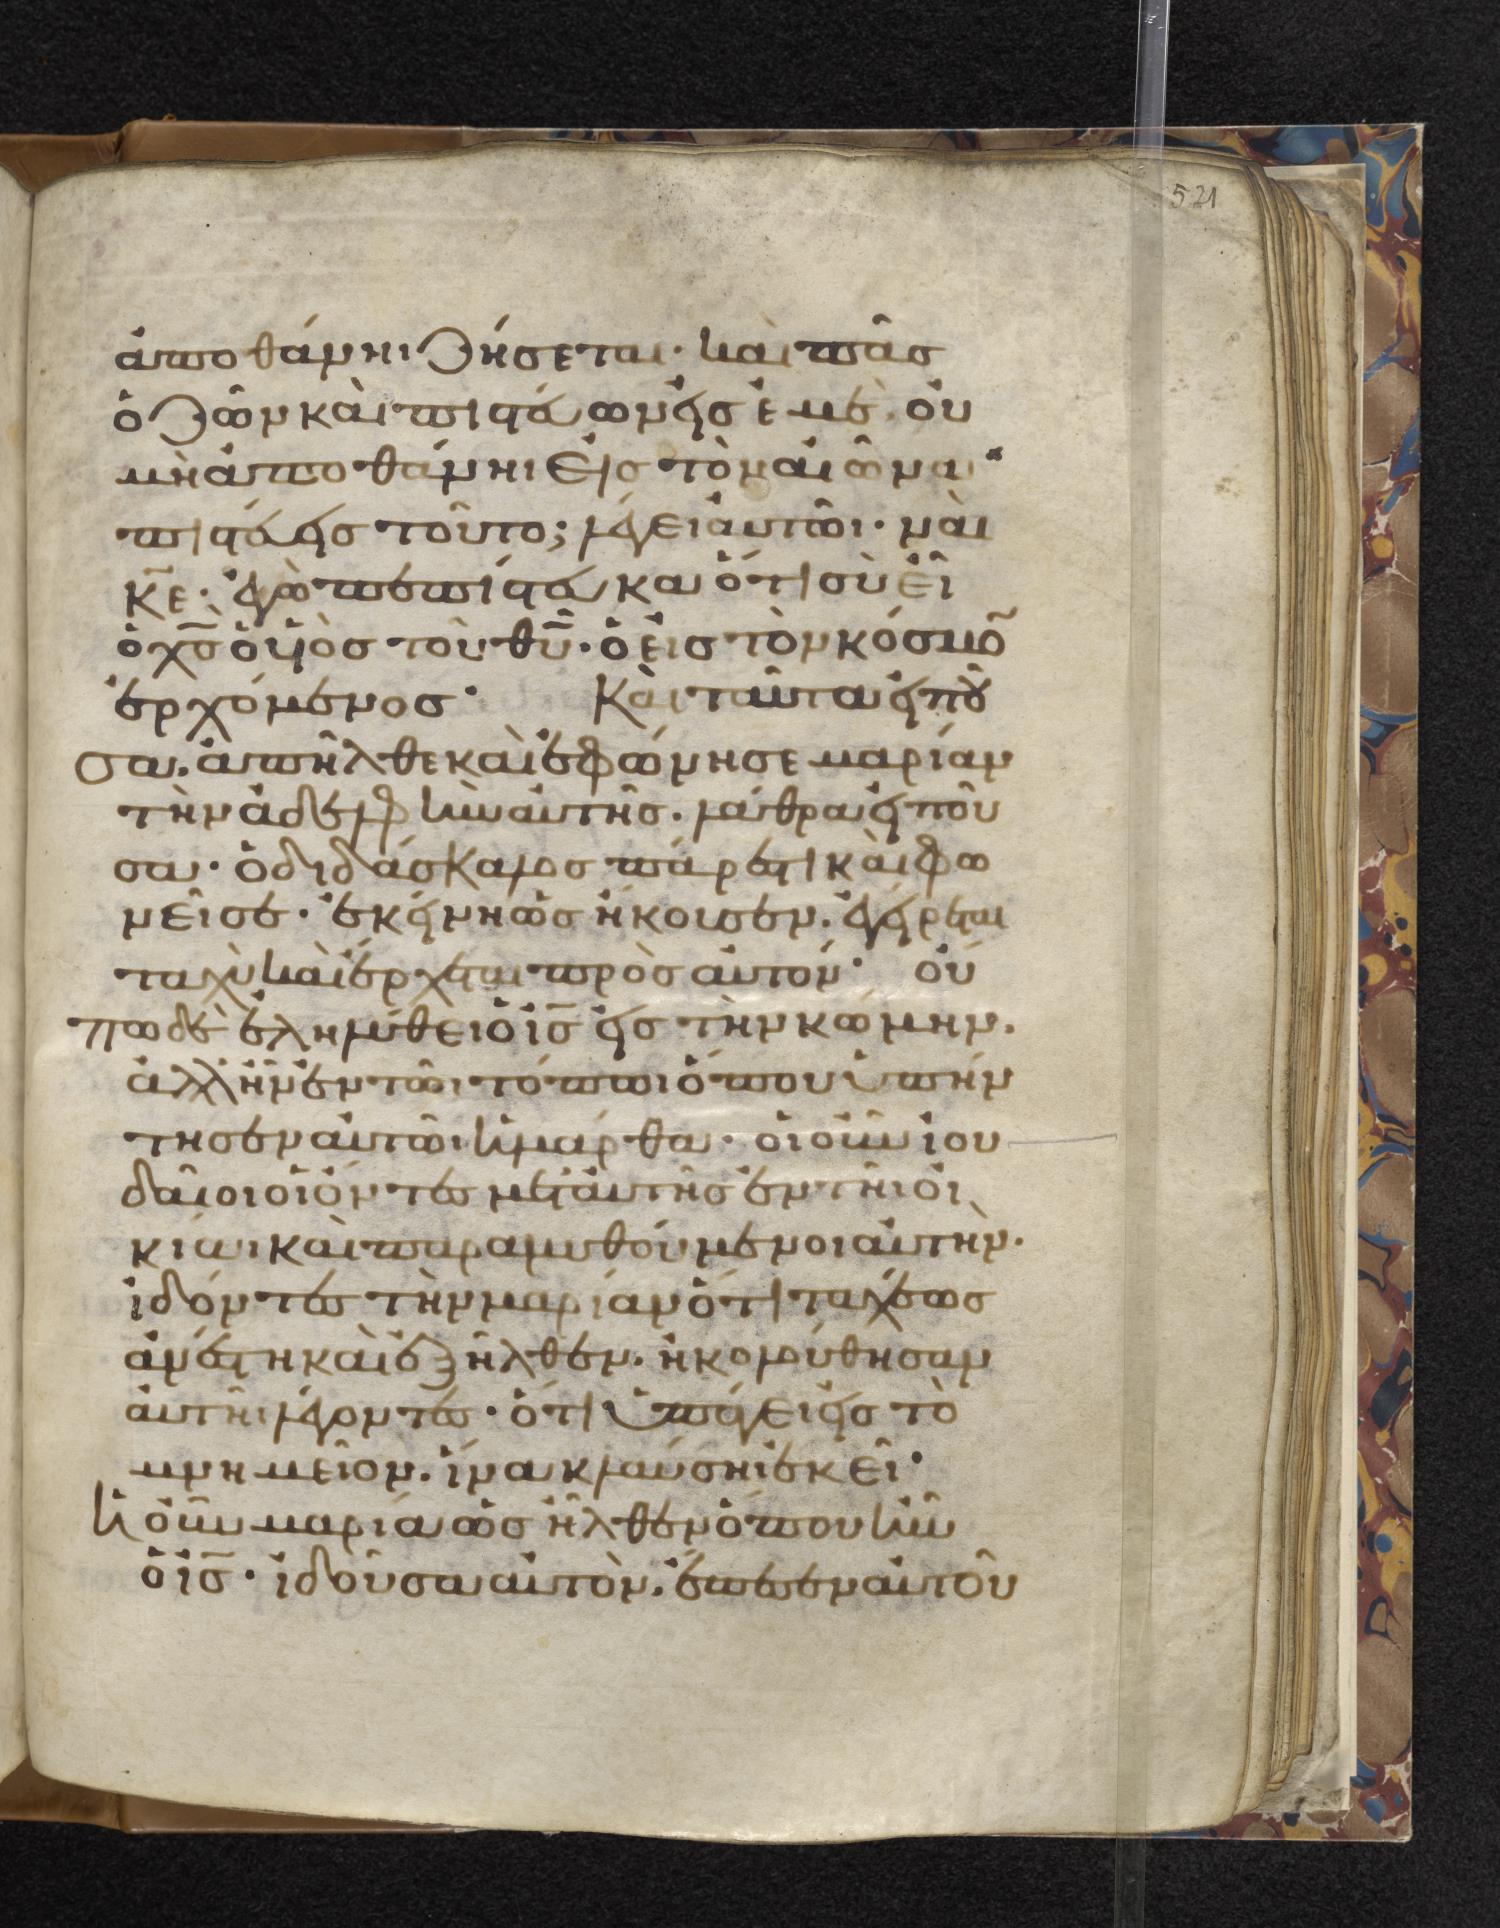 521
ἀποθάνηι ζήσεται· καὶ πᾶς
ὁ ζῶν καὶ πιστεύων εἰς ἐμὲ, οὐ
μὴ ἀποθάνηι εἰς τὸν αἰῶνα·
πιστεύεις τοῦτο; λέγει αὐτῶι· ναὶ
κ̅ε̅· ἐγὼ πεπίστευκα ὅτι σὺ εἶ
ὁ χ̅ς̅ ὁ υἱὸς τοῦ θ̅υ̅· ὁ εἰς τὸν κόσμο̅
ἐρχόμενος· Καὶ ταῦτα εἰποῦ
σα. ἀπῆλθε καὶ ἐφώνησε μαρίαν
τὴν ἀδελφὴν αὐτῆς. λάθρα εἰποῦ
σα· ὁ διδάσκαλος πάρεστι καὶ φω
νεῖ σε· ἐκείνη ὡς ἤκουσεν. ἐγείρεται
ταχὺ καὶ ἔρχεται πρὸς αὐτόν· οὔ
πω δὲ ἐληλύθει ὁ ι̅ς̅ εἰς τὴν κώμην.
ἀλλ' ἦν ἐν τῶι τόπωι ὅπου ὑπήν
τησεν αὐτῶι ἡ μάρθα· οἱ οὖν ἰου
δαῖοι οἱ ὄντες μετ' αὐτῆς ἐν τῆι οἰ
κίαι καὶ παραμυθούμενοι αὐτὴν.
ἰδόντες τὴν μαρίαν ὅτι ταχέως
ἀνέστη καὶ ἐξῆλθεν. ἠκολούθησαν
αὐτῆι λέγοντες· ὅτι ὑπάγει εἰς τὸ
μνημεῖον. ἵνα κλαύσηι ἐκεῖ·
ἡ οὖν μαρία ὡς ἦλθεν ὅπου ἦν
ὁ ι̅ς̅· ἰδοῦσα αὐτὸν. ἔπεσεν αὐτοῦ